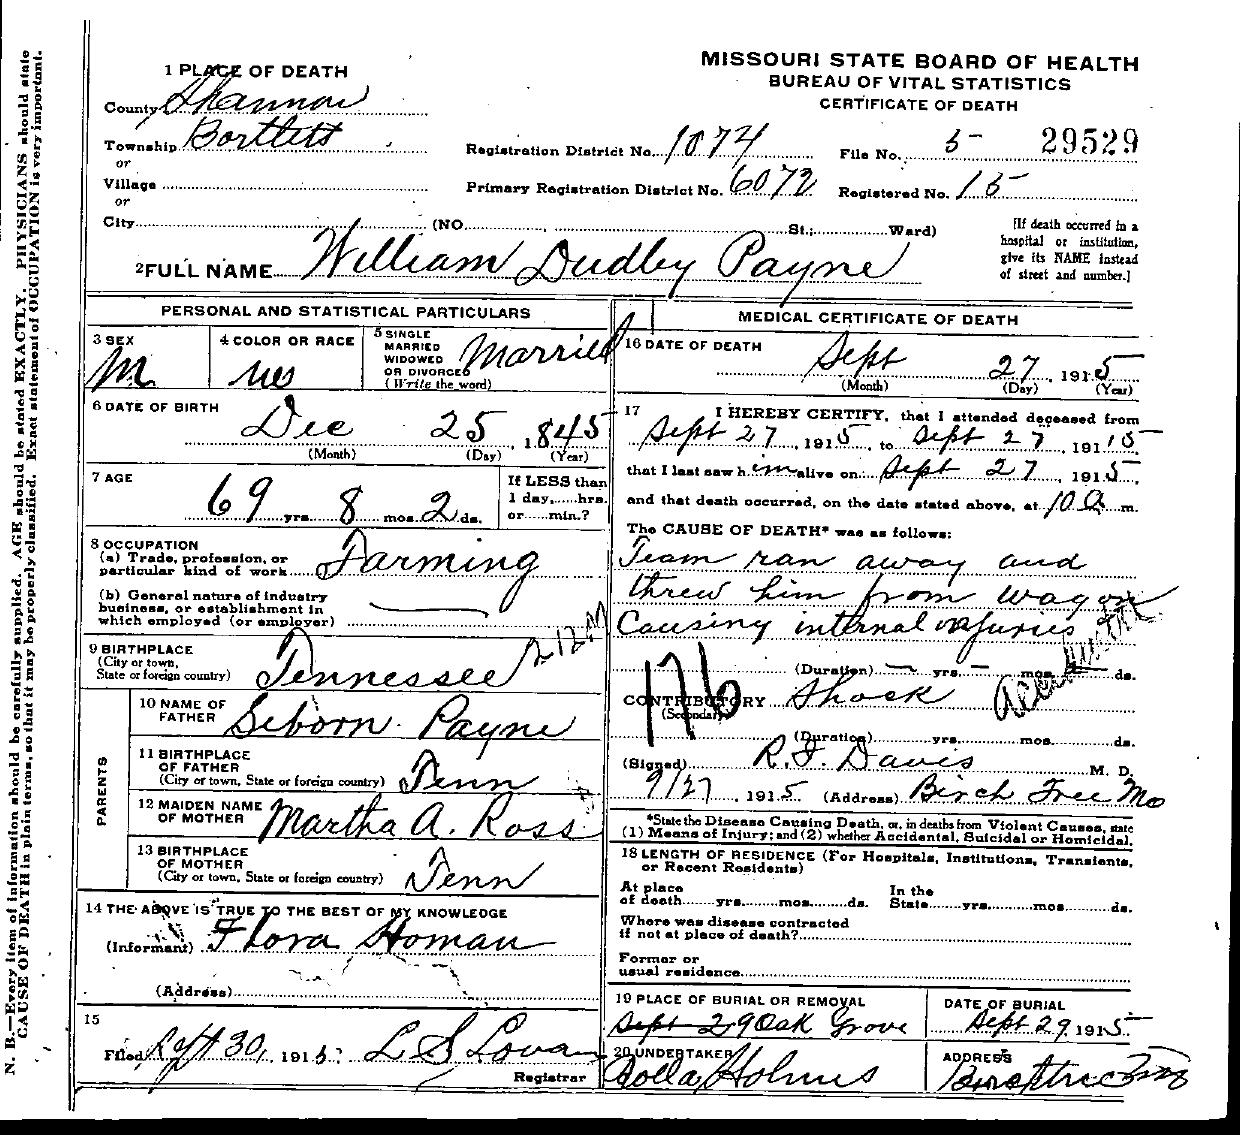 MISSOURI STATE BOARD OF HEALTH
BUREAU OF VITAL STATISTICS
CERTIFICATE OF DEATH
1 PLACE OF DEATH
County Shannon
Township Bartlett
or
Village
or
City (NO. St.; Ward)
Registration District No. 1074
File No. 5- 29529
Primary Registration District No. 6072
Registered No. 15
[If death occurred in a
hospital or institution,
give its NAME instead
of street and number.]
2 FULL NAME William Dudley Payne
PERSONAL AND STATISTICAL PARTICULARS
3 SEX
M
4 COLOR OR RACE
5 SINGLE
MARRIED
WIDOWED
OR DIVORCED
(Write the word)
Married
6 DATE OF BIRTH
Dec 25, 1845
(Month) (Day) (Year)
7 AGE
69 yrs. 8 mos. 2 ds.
If LESS than
1 day, hrs.
or min.?
8 OCCUPATION
(a) Trade, profession, or
particular kind of work Farming
(b) General nature of industry
business, or establishment in
which employed (or employer)
9 BIRTHPLACE
(City or town,
State or foreign country) Tennessee
PARENTS
10 NAME OF
FATHER Seborn Payne
11 BIRTHPLACE
OF FATHER
(City or town, State or foreign country) Tenn
12 MAIDEN NAME
OF MOTHER Martha A. Ross
13 BIRTHPLACE
OF MOTHER
(City or town, State or foreign country) Tenn
14 THE ABOVE IS TRUE TO THE BEST OF MY KNOWLEDGE
(Informant) Flora Homan
(Address)
15
Filed Sept 30, 1915 L S Lovan
Registrar
MEDICAL CERTIFICATE OF DEATH
16 DATE OF DEATH
Sept 27, 1915
(Month) (Day) (Year)
17 I HEREBY CERTIFY, that I attended deceased from
Sept 27, 1915, to Sept 27, 191 15
that I last saw him alive on Sept 27, 1915,
and that death occurred, on the date stated above, at 10 a m.
The CAUSE OF DEATH* was as follows:
Team ran away and
threw him from wagon
Causing internal injuries
Accidental
(Duration) yrs. mos. ds.
176
CONTRIBUTORY Shock
(Secondary)
(Duration) yrs. mos. ds.
(Signed) R. F. Davis M. D.
9/27, 1915 (Address) Birch Tree Mo
*State the Disease Causing Death, or, in deaths from Violent Causes, state
(1) Means of Injury; and (2) whether Accidental, Suicidal or Homicidal.
18 LENGTH OF RESIDENCE (For Hospitals, Institutions, Transients,
or Recent Residents)
At place
of death yrs. mos. ds.
In the
State yrs. mos. ds.
Where was disease contracted
if not at place of death?
Former or
usual residence
19 PLACE OF BURIAL OR REMOVAL
Sept 29 Oak Grove
DATE OF BURIAL
Sept 29, 1915
20 UNDERTAKER
Rolla Holmes
ADDRESS
N. B.—Every item of information should be carefully supplied. AGE should be stated EXACTLY. PHYSICIANS should state
CAUSE OF DEATH in plain terms, so that it may be properly classified. Exact statement of OCCUPATION is very important.